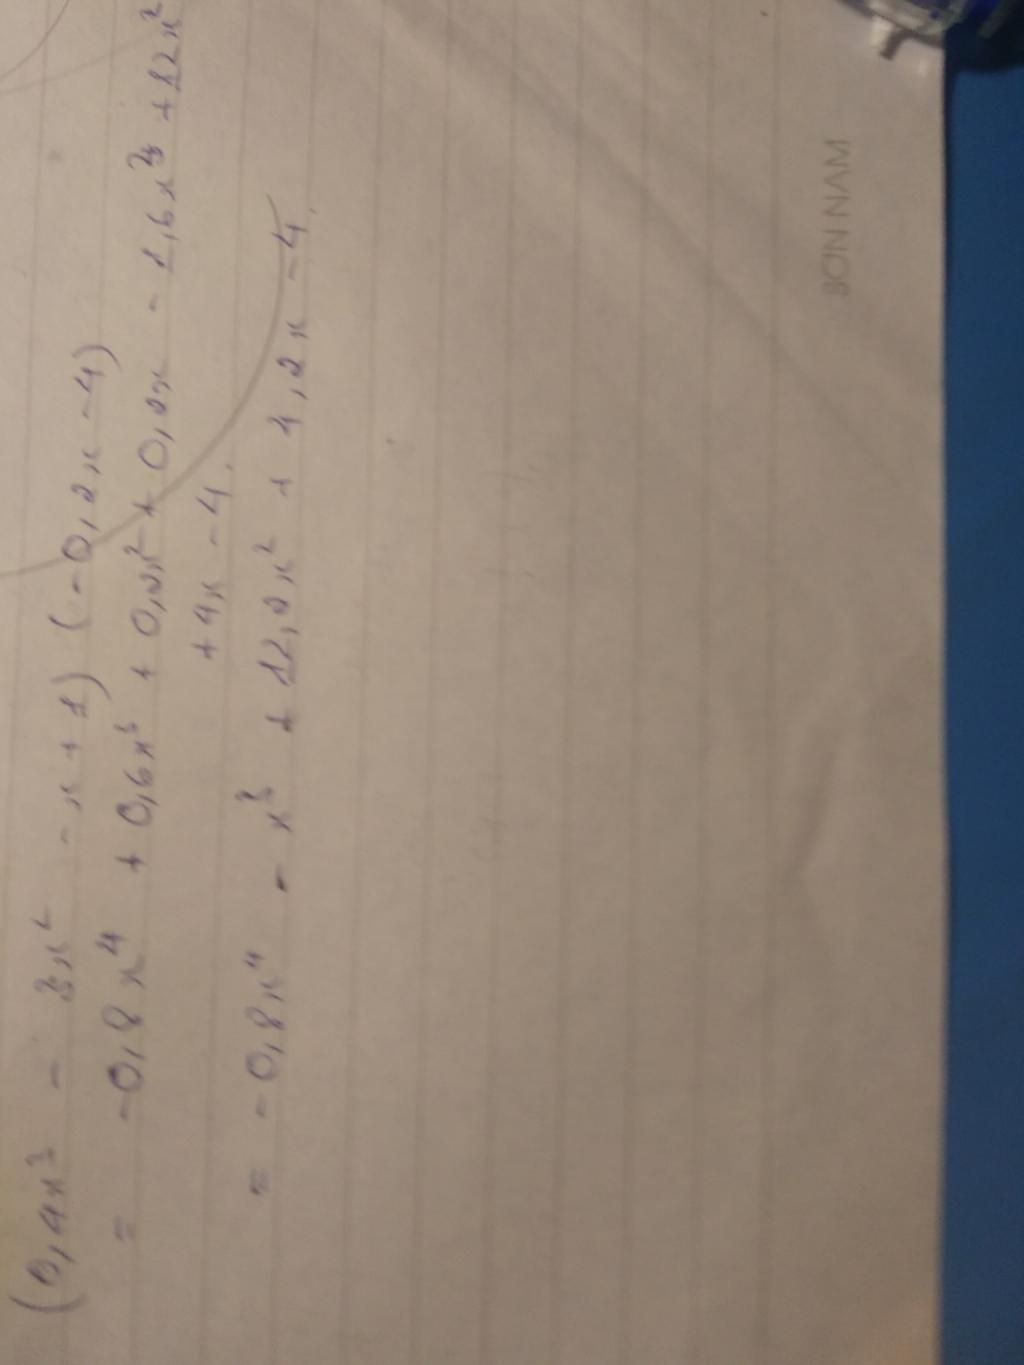 (0,4x³ - 3x² - x + 1) (-0,2x - 4)
= -0,8x⁴ + 0,6x³ + 0,2x² + 0,2x - 1,6x³ + 12x²
+ 4x - 4.
= -0,8x⁴ - x³ + 12,2x² + 4,2x - 4.
SON NAM